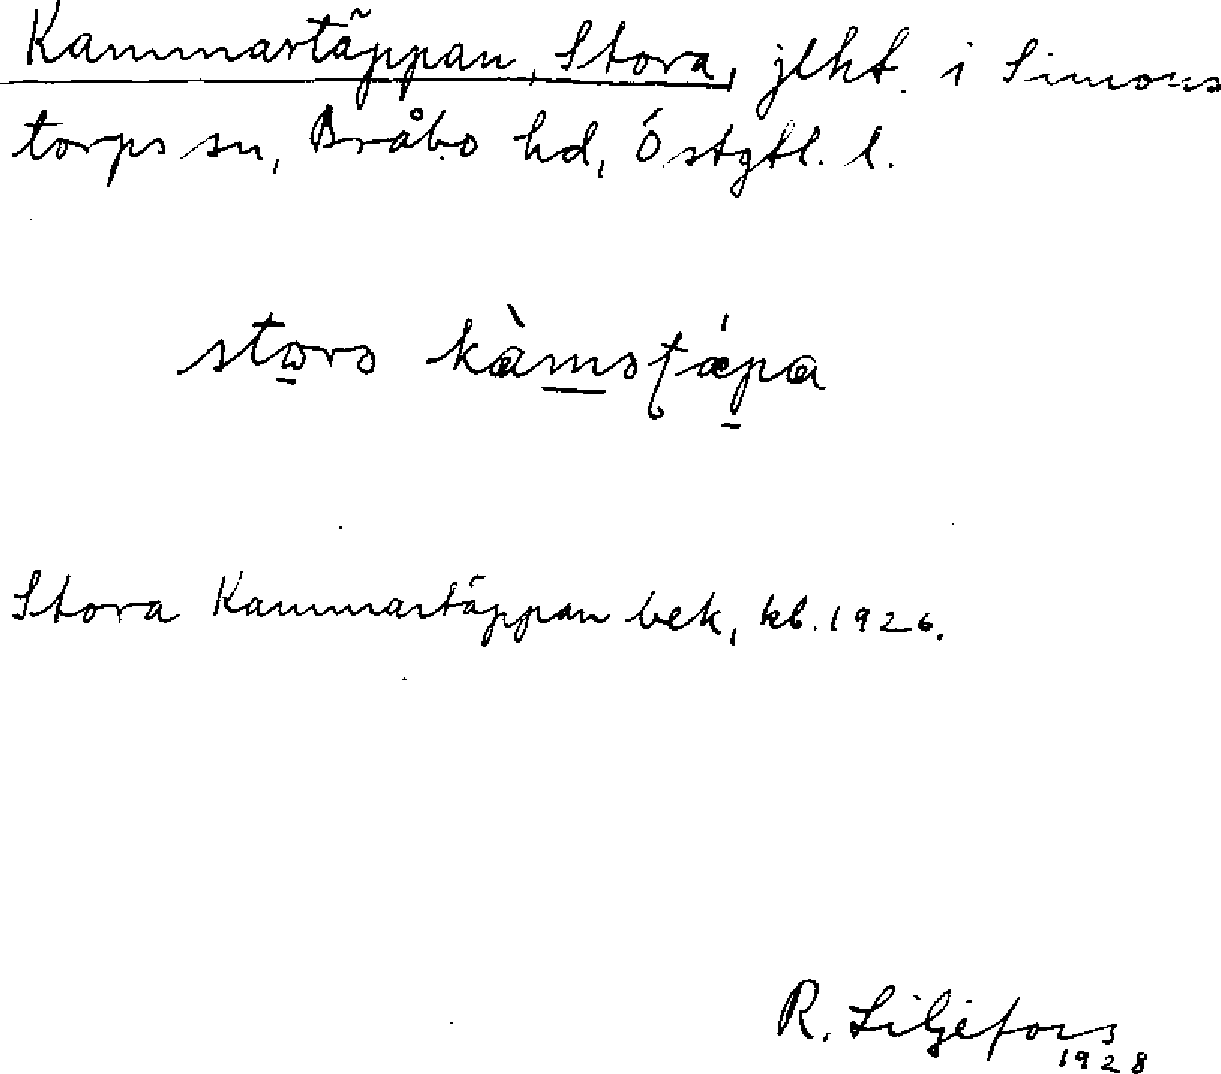 Kammartäppan, Stora, jlht. i Simons
torps sn, Bråbo hd, Östgtl. l.
storə kàməʈǽpa
Stora Kammartäppan bek, kb. 1926.
R. Liljefors
1928